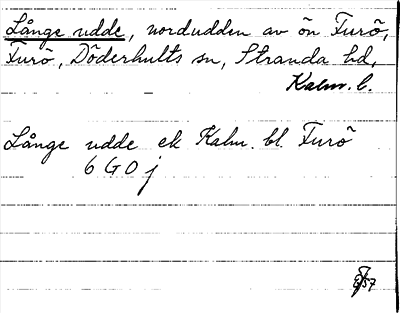 Långe udde, nordudden av ön Furö,
Furö, Döderhults sn, Stranda hd,
Kalm. l.
Långe udde ek Kalm. bl. Furö
6 G 0 j